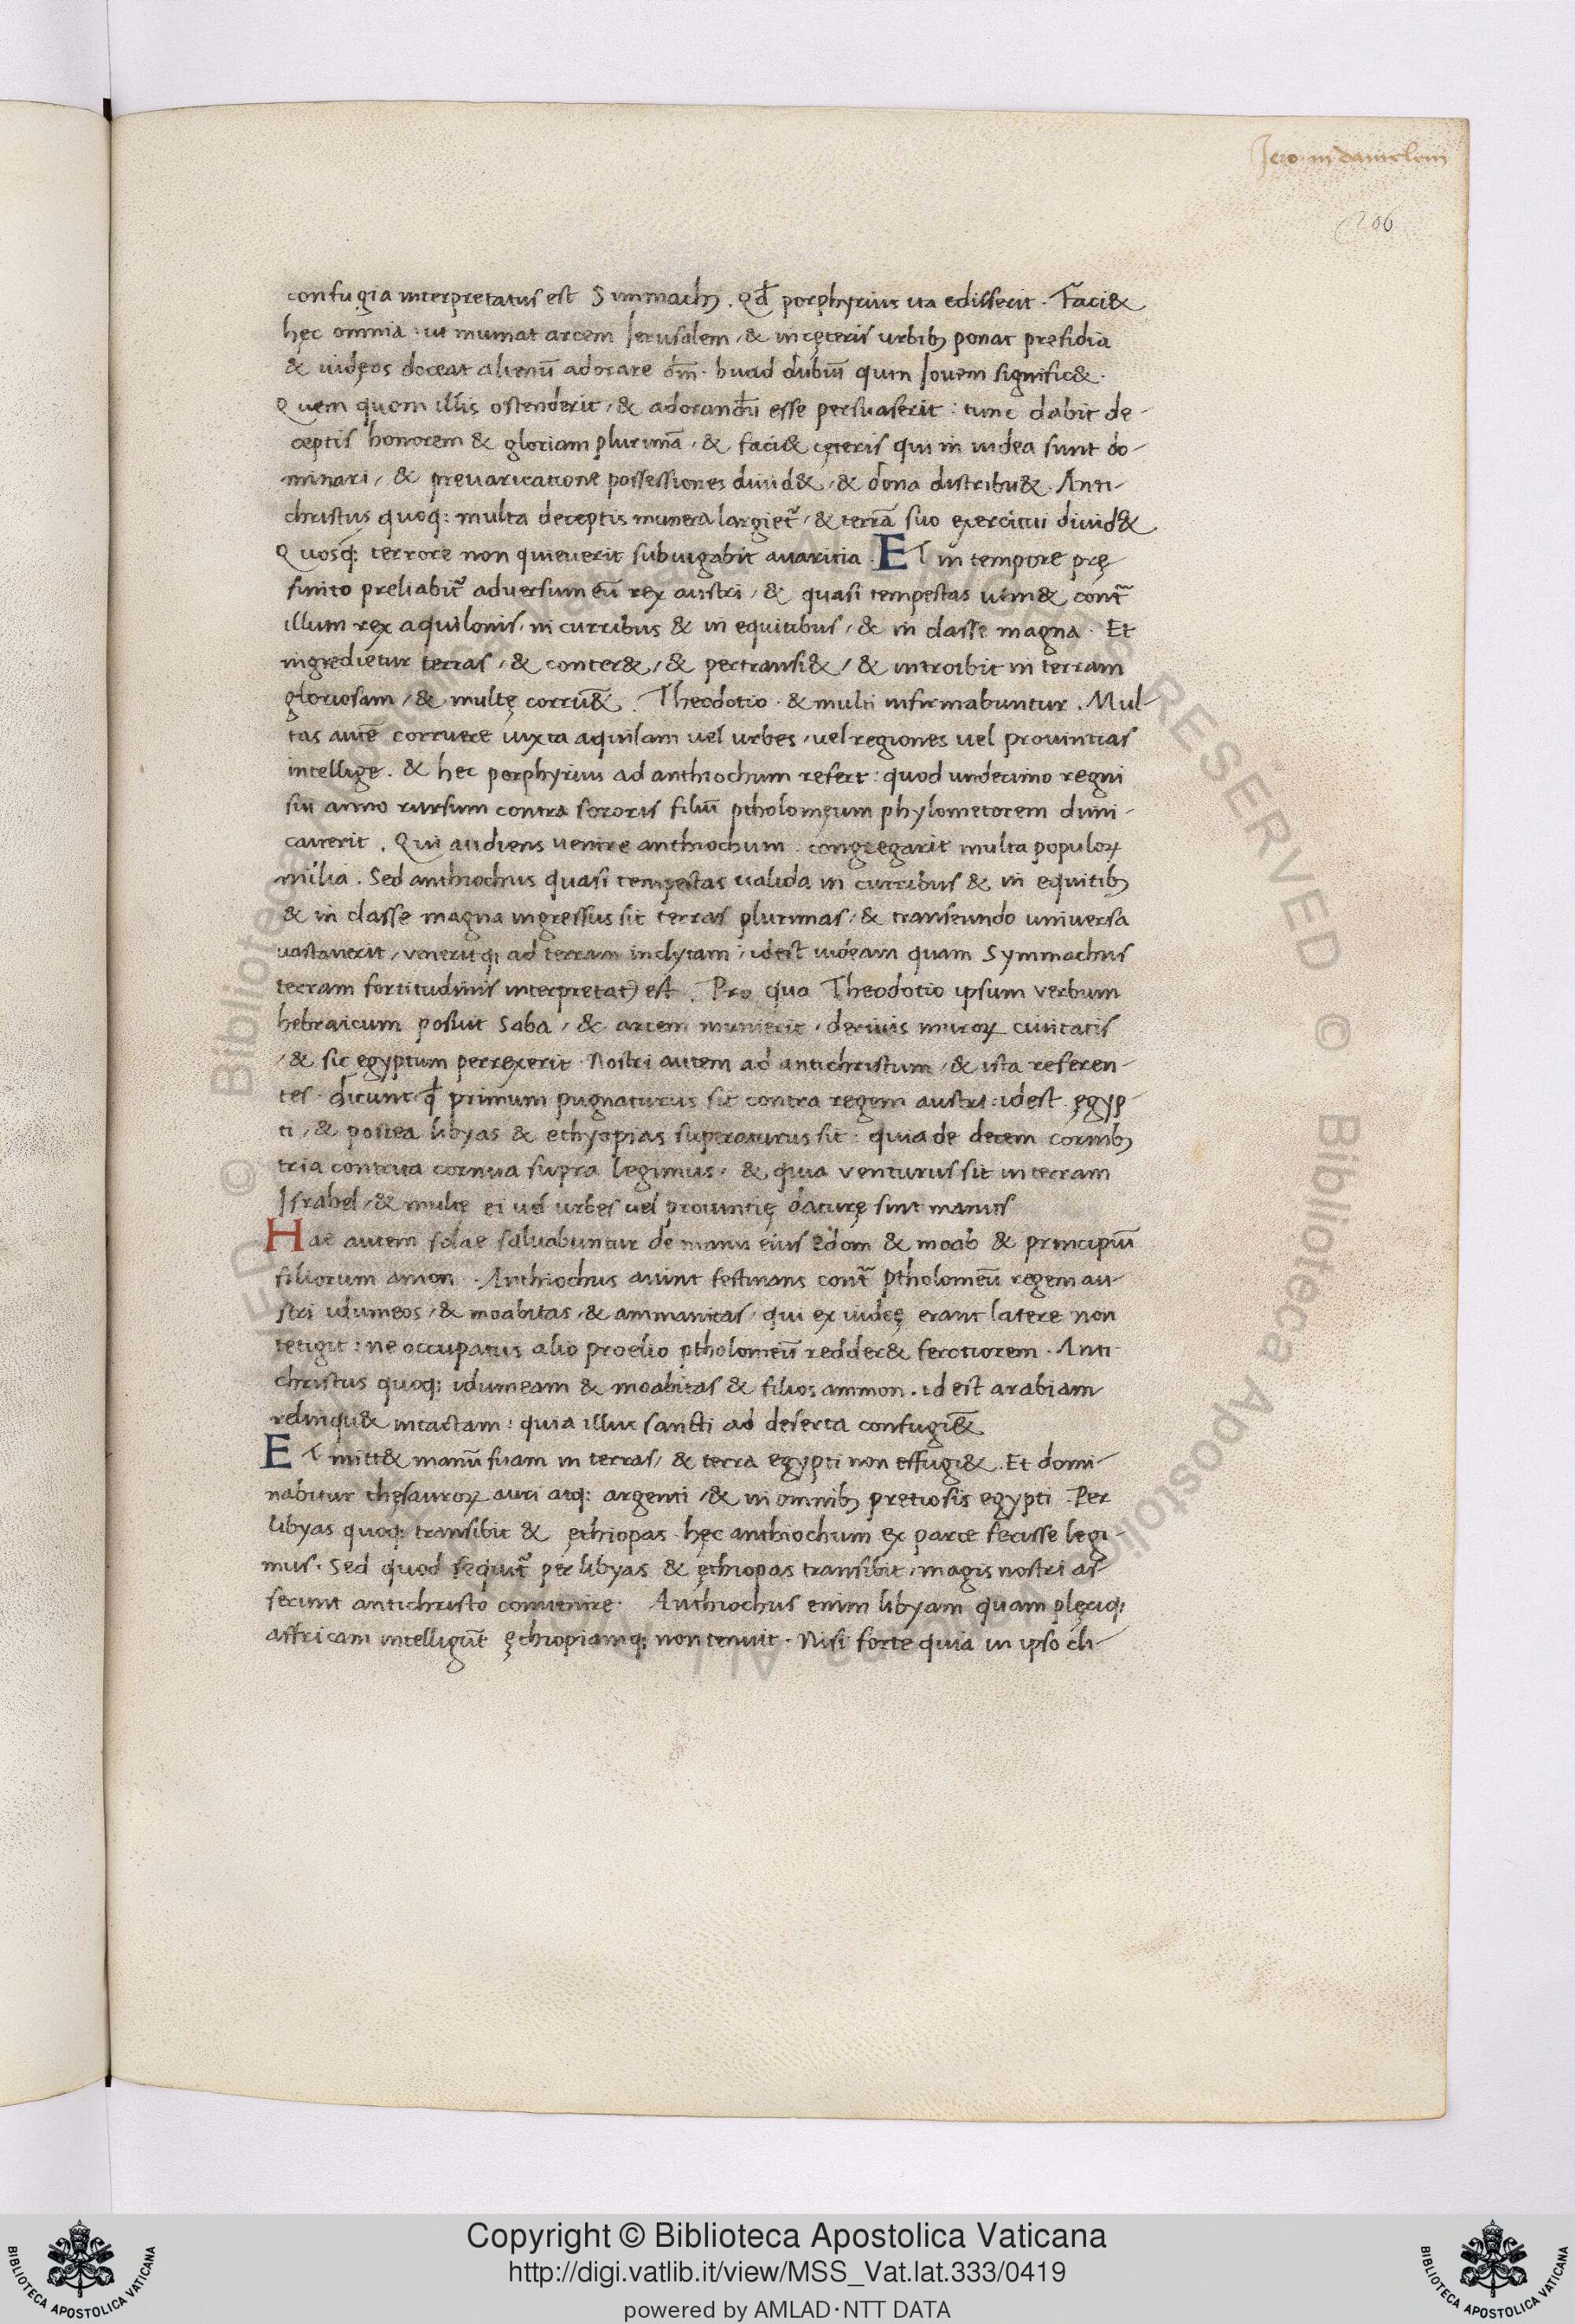 Jero. in danielem
206
confugia interpretatus est Simmachꝰ. Qđ porphyrius ita edisserit. Faci&
hęc omnia: ut muniat arcem Ierusalem, & in cęteris urbibꝫ ponat presidia
& iudęos doceat alienũ adorare dm̃. haud dubiũ quin Iouem signific&.
Quem quom illis ostenderit, & adorandũ esse persuaserit: tunc dabit de-
ceptis honorem & gloriam plurimã, & faci& cęteris qui in iudea sunt do-
minari, & preuaricatione possessiones diuid&, & dona distribu&. Anti-
christus quoqꝫ multa deceptis munera largiet᷑, & terrã suo exercitui diuid&
Quosqꝫ terrore non quieuerit subiugabit auaritia. ET in tempore prę
finito preliabit᷑ adversum eũ rex austri, & quasi tempestas ueni& cont᷑
illum rex aquilonis, in curribus & in equitibus, & in classe magna. Et
ingredietur terras, & conter&, & pertransi&, & introibit in terram
gloriosam, & multę corrũ&. Theodotio. & multi infirmabuntur. Mul-
tas autẽ corruere iuxta aquilam uel urbes, uel regiones uel prouintias
intellige. & hec porphyrius ad anthiochum refert: quod undecimo regni
sui anno rursum contra sororis filiũ ptholomęum phylometorem dimi-
cauerit. Qui audiens uenire anthiochum. congregarit multa populoꝝ
milia. Sed anthiochus quasi tempestas ualida in curribus & in equitibꝫ
& in classe magna ingressus sit terras plurimas, & transeundo universa
vastaverit, veneritqꝫ ad terram inclytam, idest iudeam quam Symmachus
terram fortitudinis interpretatꝰ est. Pro quo Theodotio ipsum verbum
hebraicum posuit Saba, & arcem munierit, deruis muroꝝ ciuitatis
, & sic egyptum perrexerit. Nostri autem ad antichristum, & ista referen-
tes. dicunt qđ primum pugnaturus sit contra regem austri: idest ęgyp-
ti, & postea libyas & ethyopias superaturus sit: quia de decem cornibꝫ
tria contrita cornua supra legimus, & quia venturus sit in terram
Israhel, & multę ei uel urbes uel prouintię daturę sint manus
Hae autem solae saluabuntur de manu eius edom & moab & principiũ
filiorum amon. Anthiochus aiunt festinans cont᷑ ptholomeũ regem au-
stri idumeos, & moabitas, & ammanitas, qui ex iudeę erant latere non
tetigit: ne occupatus alio proelio ptholomeũ redder& ferctiorem. Anti
christus quoqꝫ idumeam & moabitas & filios ammon. id est arabiam
relinqu& intactam: quia illuc sancti ad deserta confugiẽ&
ET mitt& manũ suam in terras, & terra egypti non effugi&. Et domi-
nabitur thęsauroꝝ auri atqꝫ argenti, & in omnibꝫ pretiosis egypti. Per
libyas quoqꝫ transibit & ęthiopas. hęc anthiochum ex parte fecisse legi-
mus. Sed quod sequit᷑ per libyas & ęthiopas transibit, magis nostri as-
serunt antichristo conuenire. Anthiochus enim libyam quam plęriqꝫ
affricam intelligũt ęthiopiamqꝫ non tenuit. Nisi forte quia in ipso cli-
Copyright © Biblioteca Apostolica Vaticana
http://digi.vatlib.it/view/MSS_Vat.lat.333/0419
powered by AMLAD·NTT DATA
BIBLIOTECA APOSTOLICA VATICANA
BIBLIOTECA APOSTOLICA VATICANA